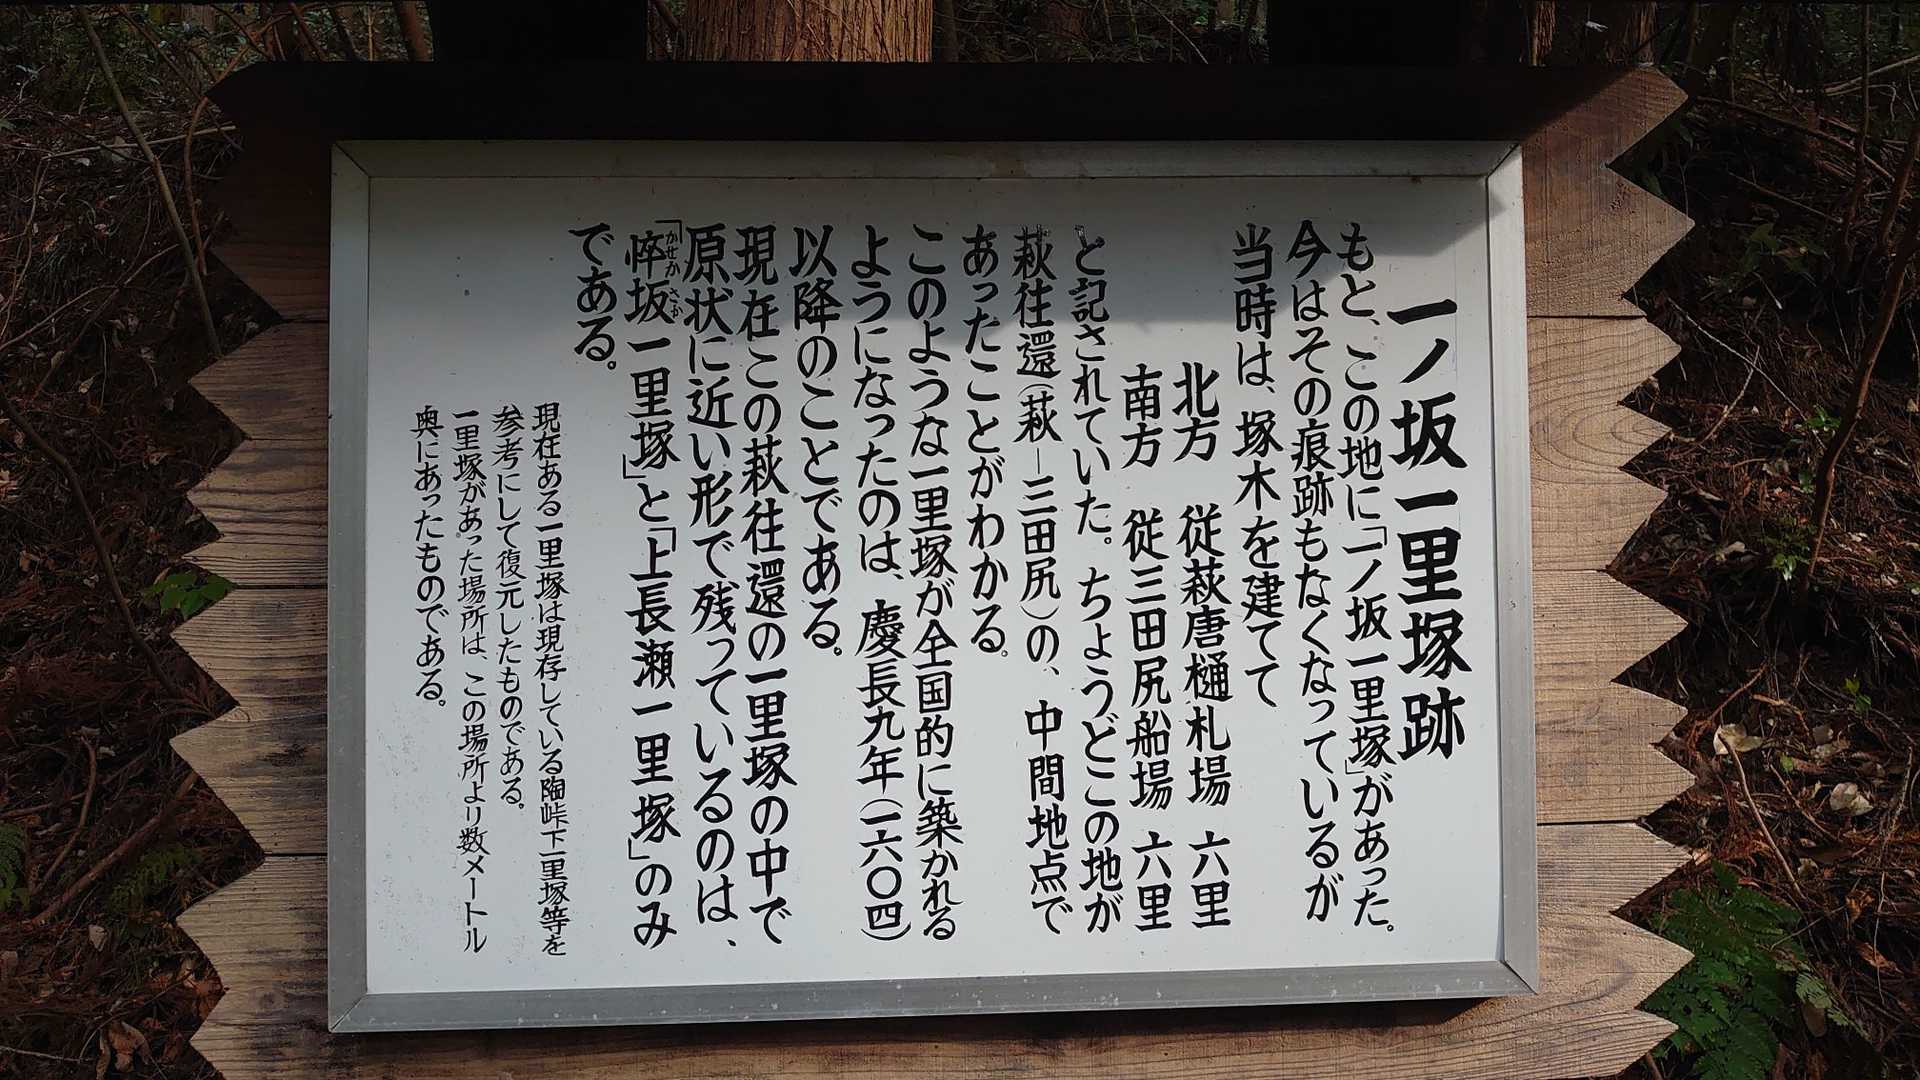 一ノ坂一里塚跡
もと、この地に「一ノ坂一里塚」があった。
今はその痕跡もなくなっているが
当時は、塚木を建てて
北方 従萩唐樋札場 六里
南方 従三田尻船場 六里
と記されていた。ちょうどこの地が
萩往還(萩―三田尻)の、中間地点で
あったことがわかる。
このような一里塚が全国的に築かれる
ようになったのは、慶長九年(一六〇四)
以降のことである。
現在この萩往還の一里塚の中で
原状に近い形で残っているのは、
「悴坂一里塚」と「上長瀬一里塚」のみ
かせか さか
である。
現在ある一里塚は現存している陶峠下一里塚等を
参考にして復元したものである。
一里塚があった場所は、この場所より数メートル
奥にあったものである。